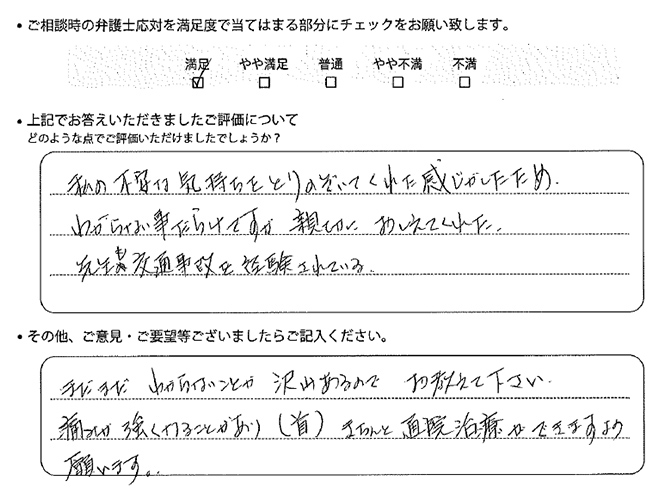 ・ご相談時の弁護士応対を満足度で当てはまる部分にチェックをお願い致します。
満足 やや満足 普通 やや不満 不満
・上記でお答えいただきましたご評価について
どのような点でご評価いただけましたでしょうか？
私の不安な気持ちをとりのぞいてくれた感じがしたため.
わからない事だらけですが 親切に おしえてくれた.
先生も交通事故を経験されている.
・その他、ご意見・ご要望等ございましたらご記入ください。
まだまだ わからないことが 沢山あるので お教えて下さい.
痛みが強くなることがあり（首）きちんと 通院治療ができますよう
願います。